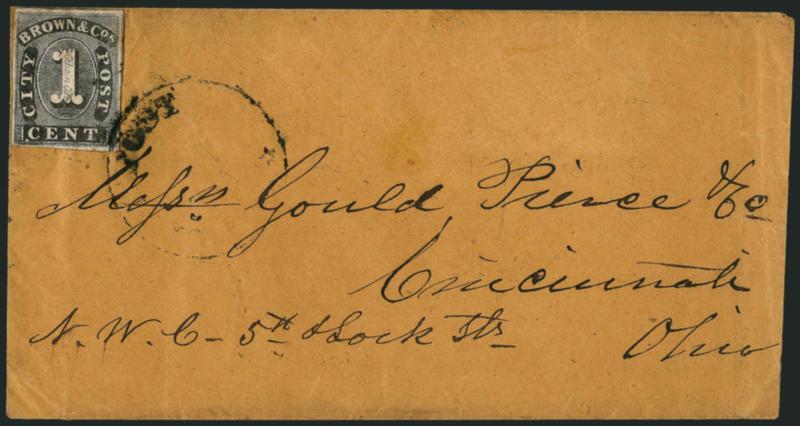 BROWN & Cos
CITY POST
1
CENT
POST
Messrs Gould Pierce & Co
Cincinnati
N. W. C - 5th & Lock Sts
Ohio